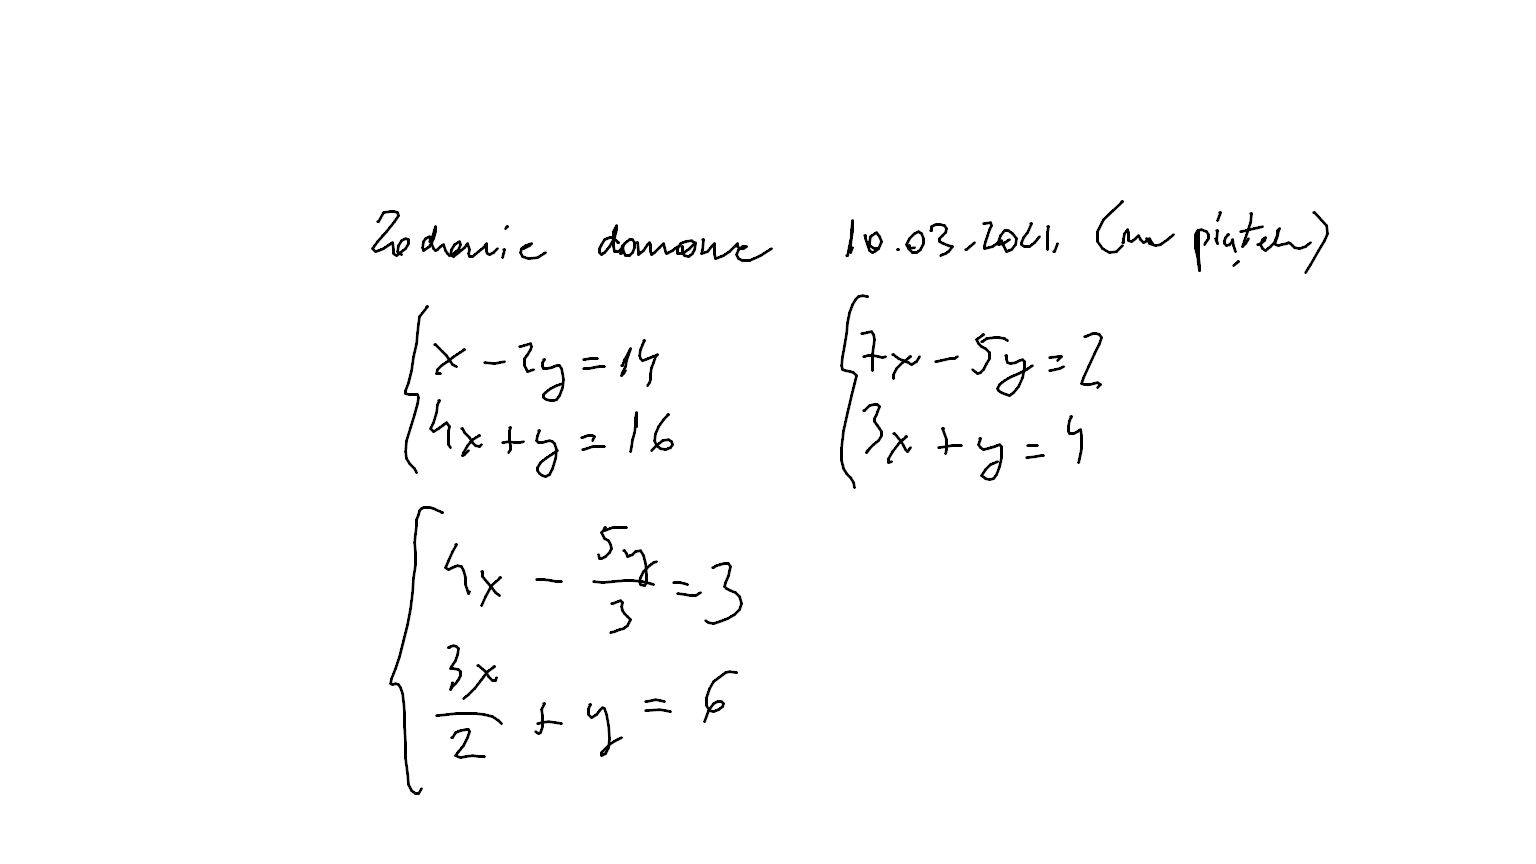 Zadanie domowe 10.03.2021. (na piątek)
x - 2y = 14
4x + y = 16
7x - 5y = 2
3x + y = 4
4x - 5y/3 = 3
3x/2 + y = 6